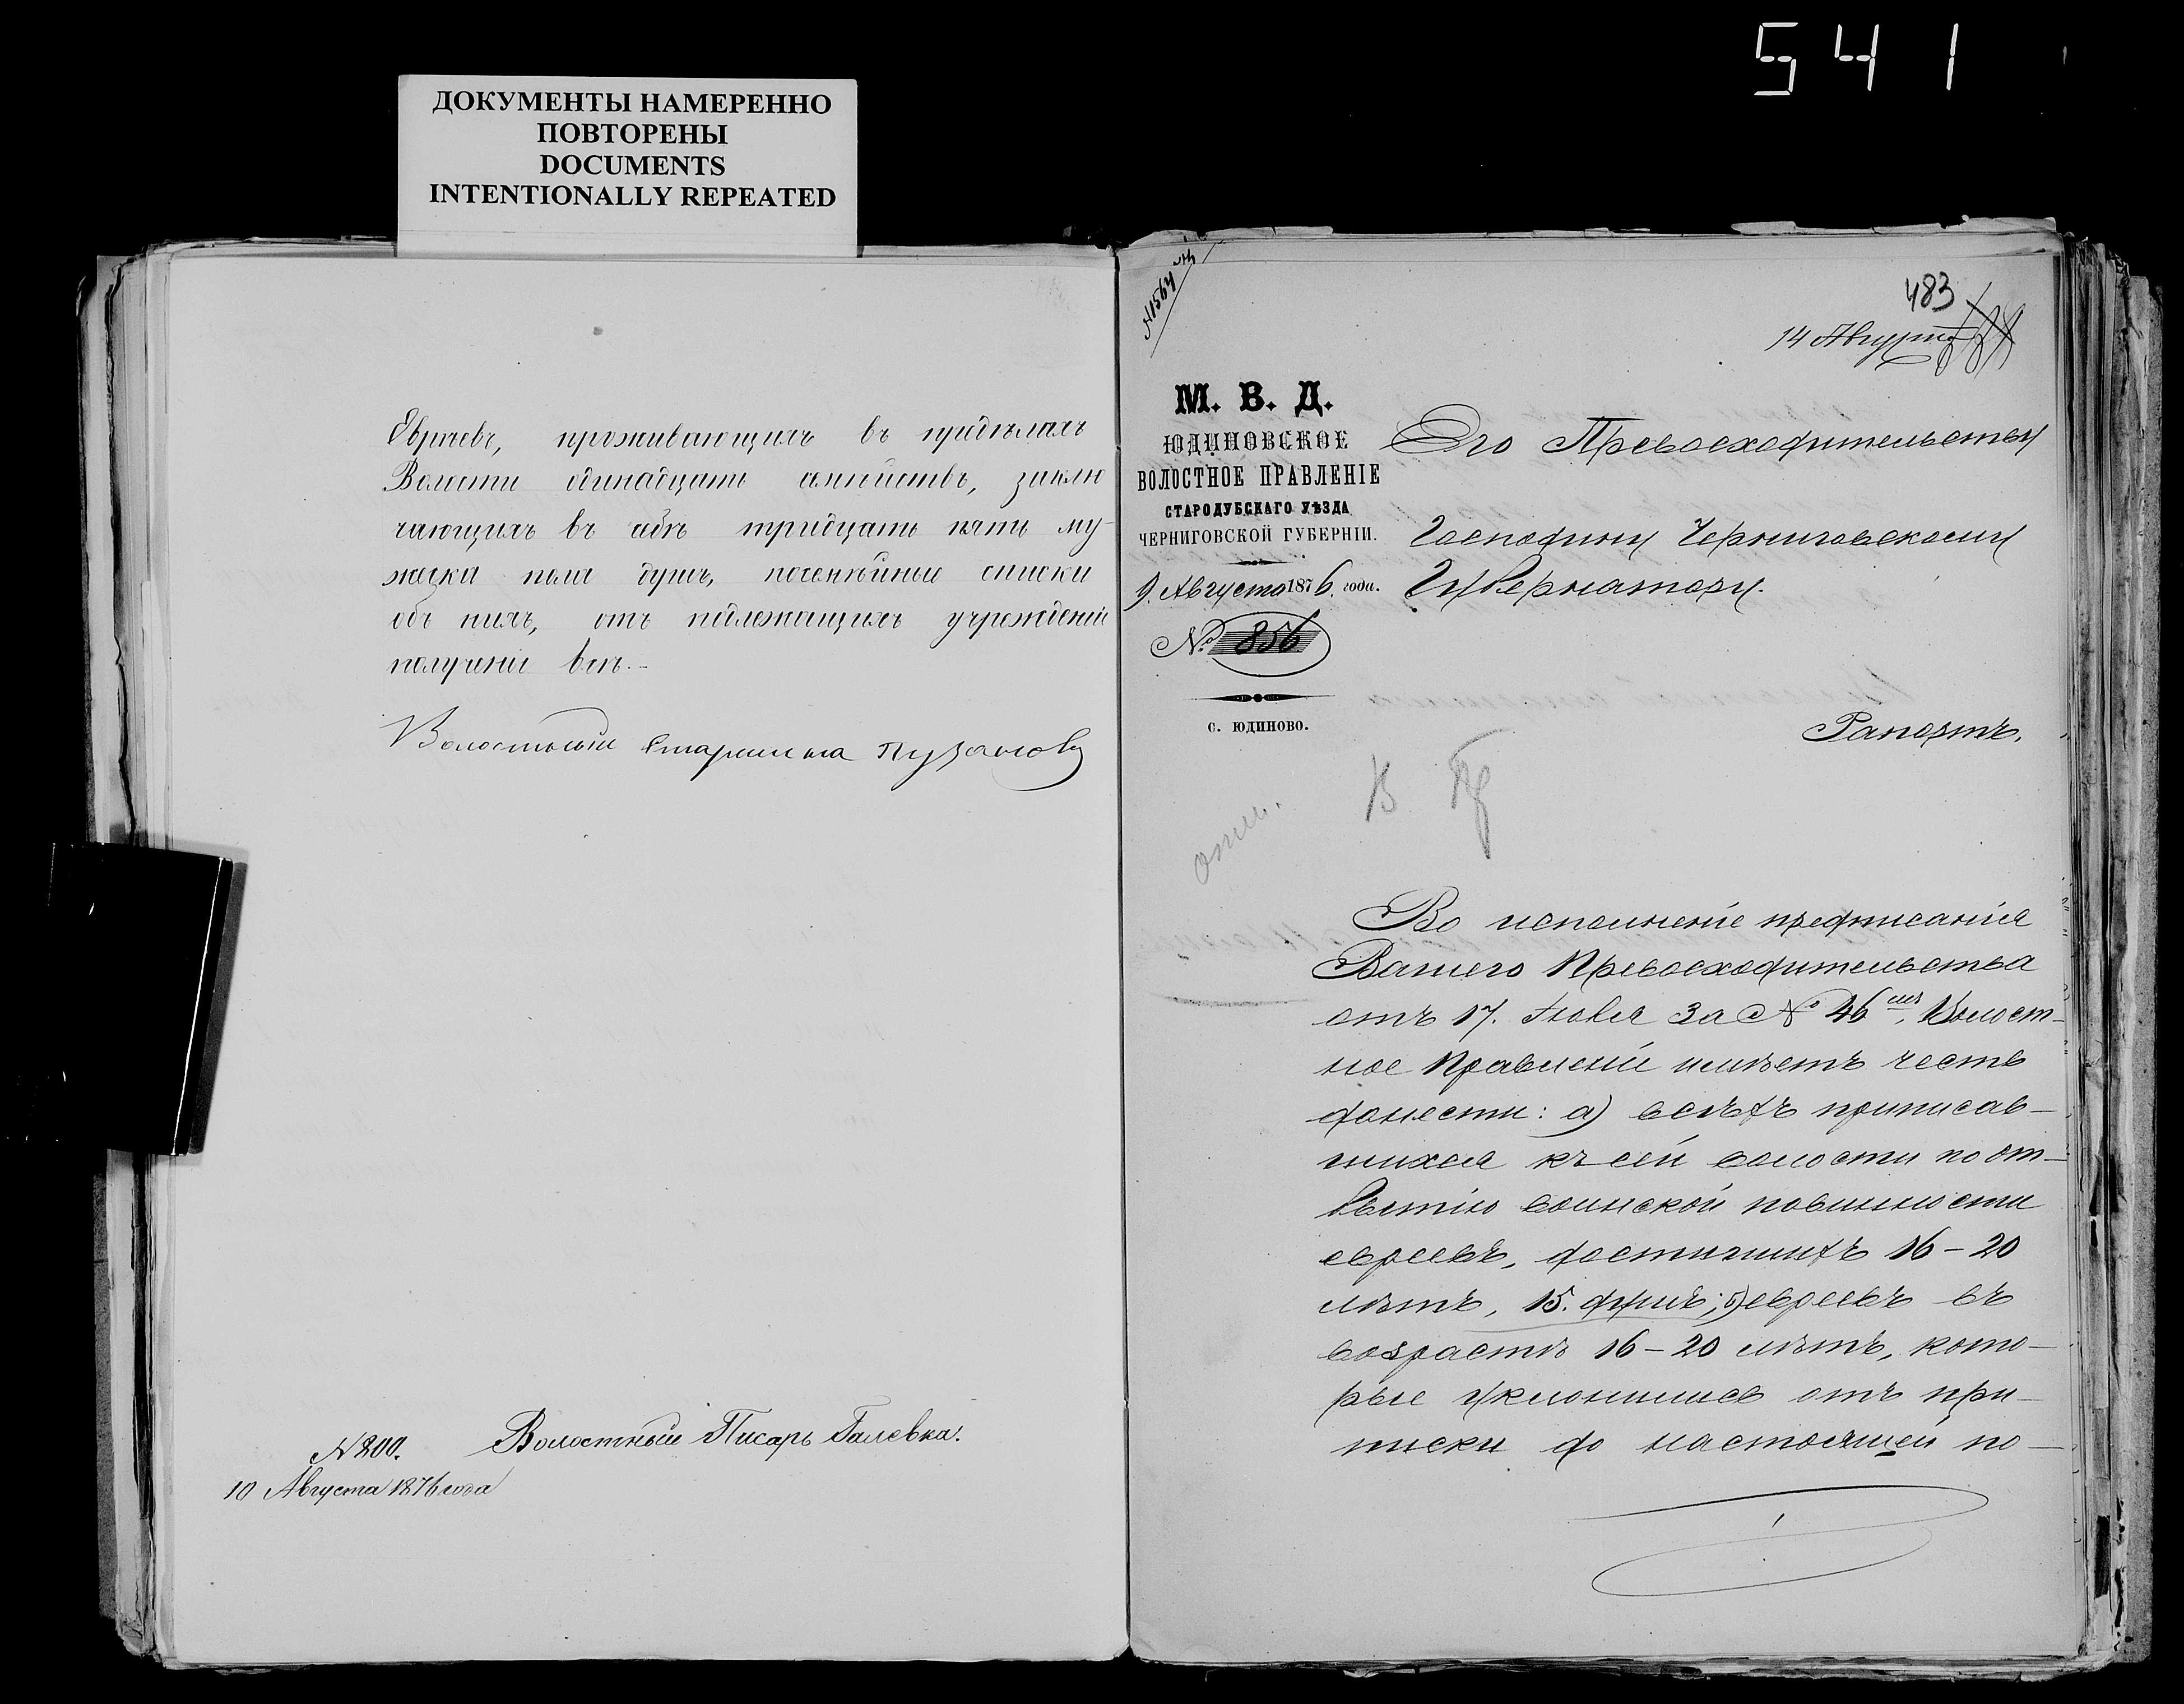 541
ДОКУМЕНТЫ НАМЕРЕННО
ПОВТОРЕНЫ
DOCUMENTS
INTENTIONALLY REPEATED
Евреевъ, проживающихъ въ предѣлахъ
Волости одинадцать семействъ, заклю
чающихъ въ себѣ тридцать пять му-
жеска пола душъ, посемѣйные списки
объ нихъ, отъ надлежащихъ учрежденій
получены всѣ.-
Волостный Старшина Пузановъ
Волостный Писарь Галевка.
N 200.
10 Августа 1876 года
483
14 Августа
М. В. Д.
ЮДИНОВСКОЕ
ВОЛОСТНОЕ ПРАВЛЕНІЕ
СТАРОДУБСКАГО УѢЗДА
ЧЕРНИГОВСКОЙ ГУБЕРНІИ.
9. Августа 1876. года.
№ 856
с. ЮДИНОВО.
Его Превосходительству
Господину Черниговскому
Губернатору.
Рапортъ.
Во исполненіе предписанія
Вашего Превосходительства
отъ 17. Іюля за № 46, Волост-
ное Правленіе имѣетъ честь
донести: а) всѣхъ приписав-
шихся къ сей волости по от-
бытію воинской повинности
евреевъ, достигшихъ 16-20
лѣтъ, 15. душъ; б) евреевъ въ
возрастѣ 16-20 лѣтъ, кото-
рые уклонились отъ при-
писки до настоящей по-